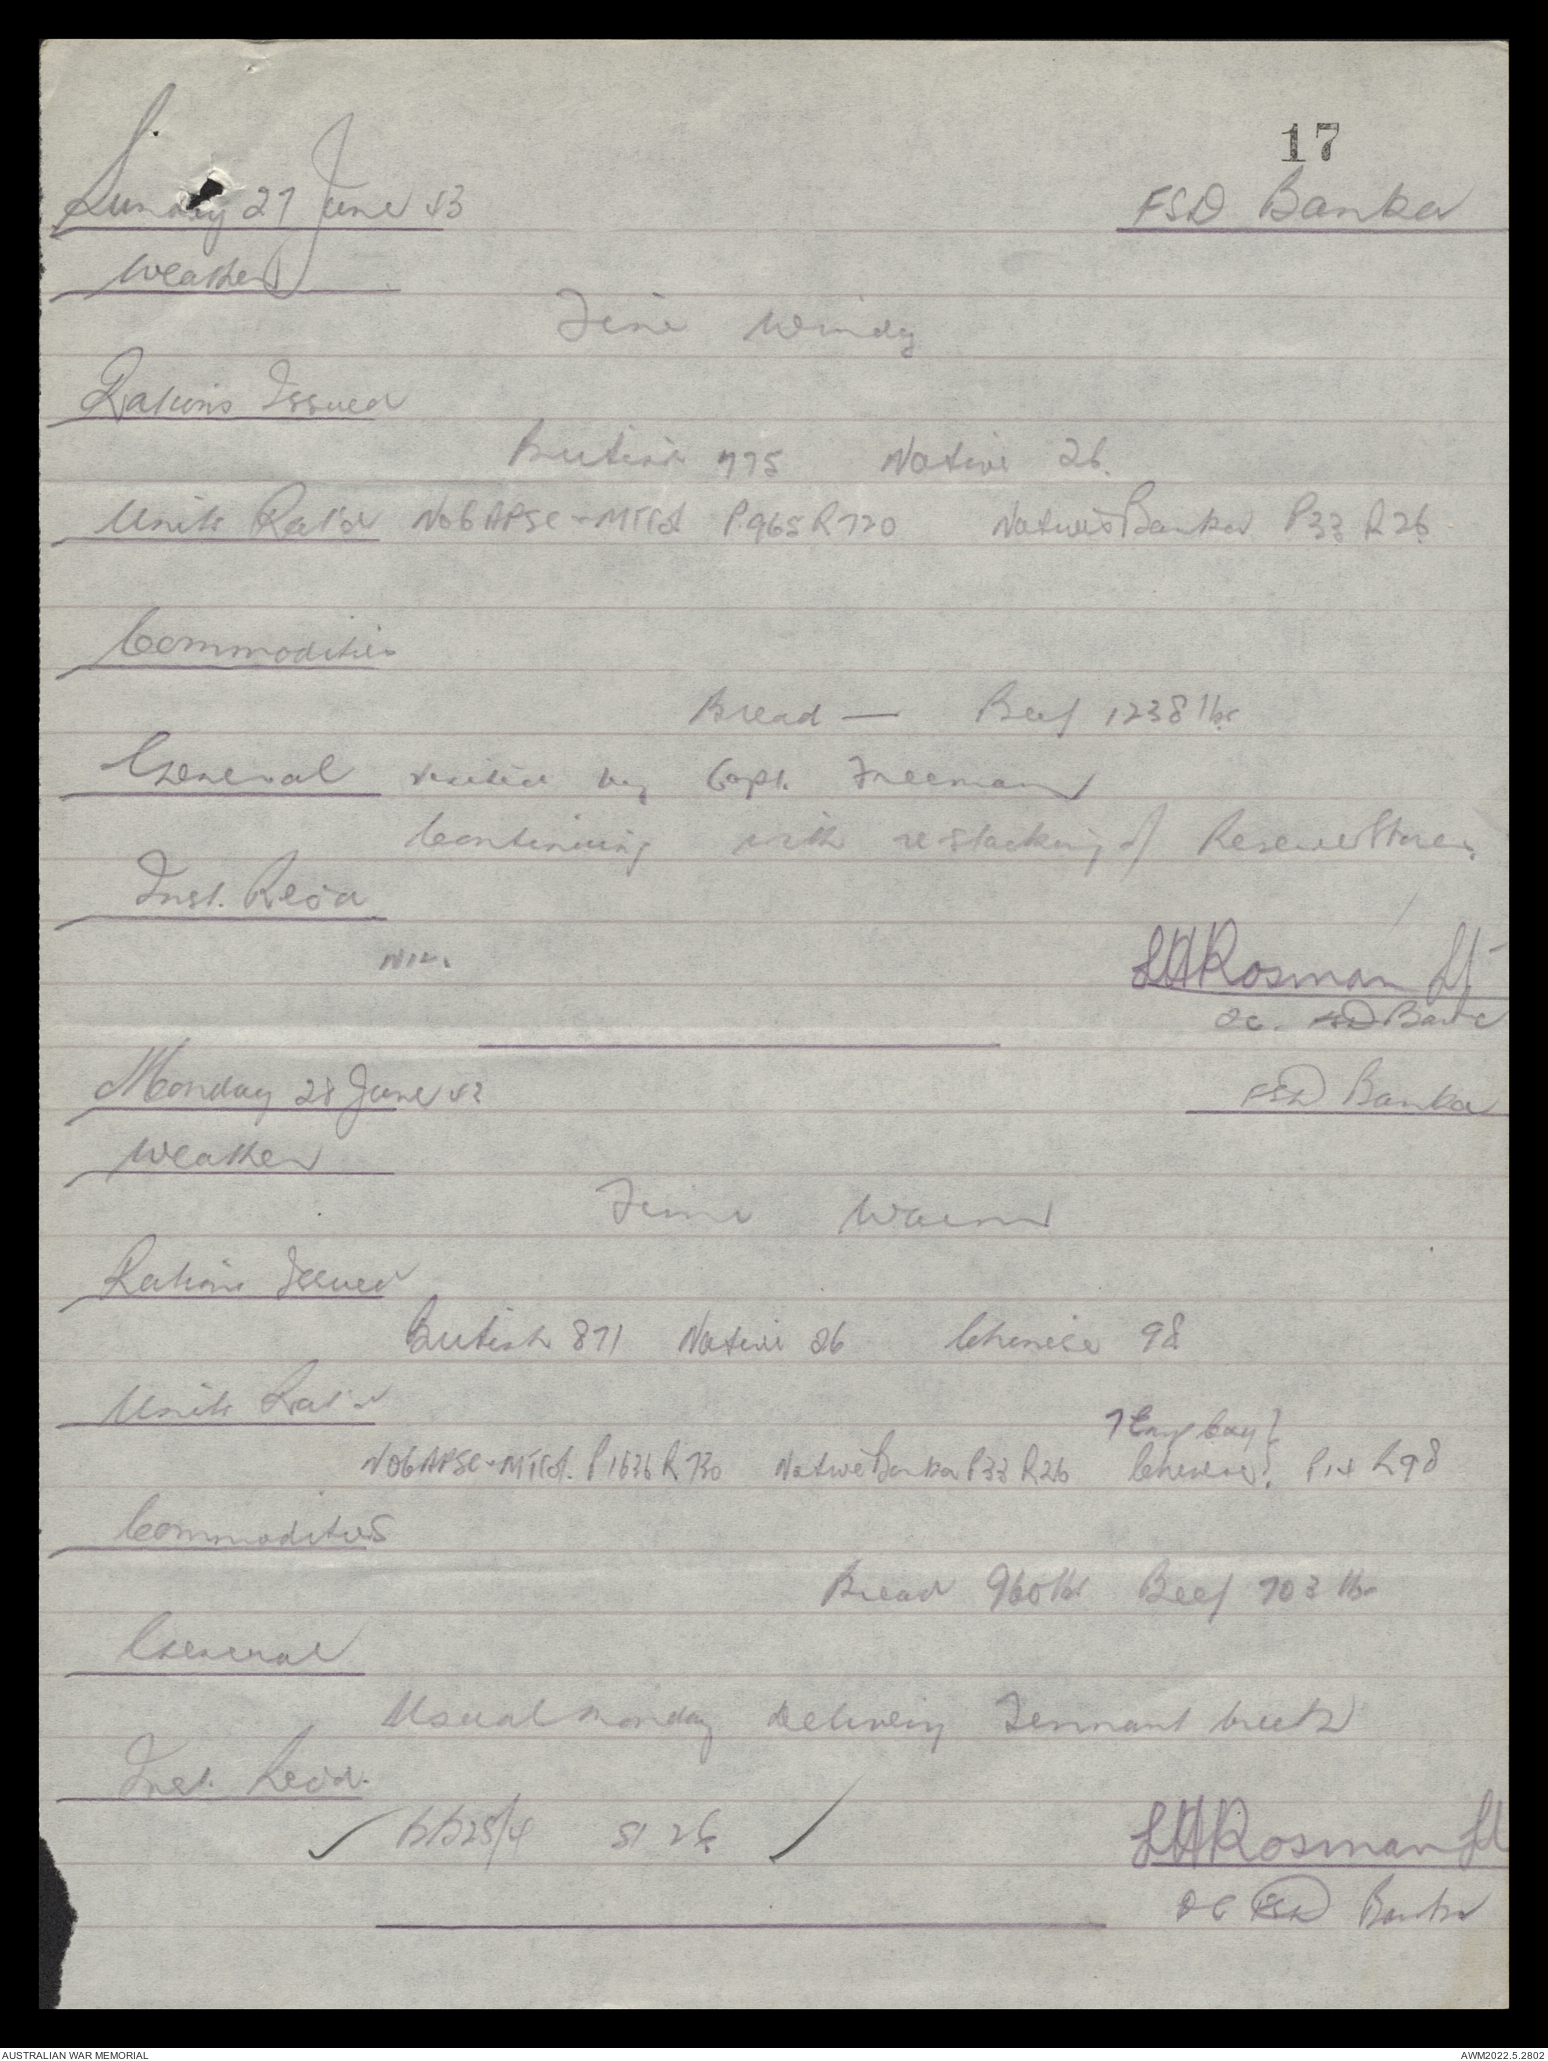 17
Sunday 27 June 43 FSD Banka
Weather
Fine Windy
Rations Issued
British 775 Native 26.
Units Rat'd No6 APSC - MTCol P965 R720 Natives Banka P33 R26
Commodities
Bread — Beef 1238 lbs
General visited by Capt. Freeman
Continuing with re-stacking of Reserve Stores.
Inst. Rec'd
Nil.
LHRosman Lt
OC. FSD Banka
Monday 28 June 43 FSD Banka
Weather
Fine Warm
Rations Issued
British 871 Native 26 Chinese 98
Units Rat'd
7 Emp Coy }
No6 APSC - MTCol. P1636 R730 Native Banka P33 R26 Chinese } P14 R98
Commodities
Bread 960 lbs Beef 703 lbs
General
Usual Monday Delivery Tennant Creek
Inst. Rec'd.
✓ 25/4 SI 26 ✓
LHRosman Lt
OC FSD Banka
AUSTRALIAN WAR MEMORIAL AWM2022.5.2802